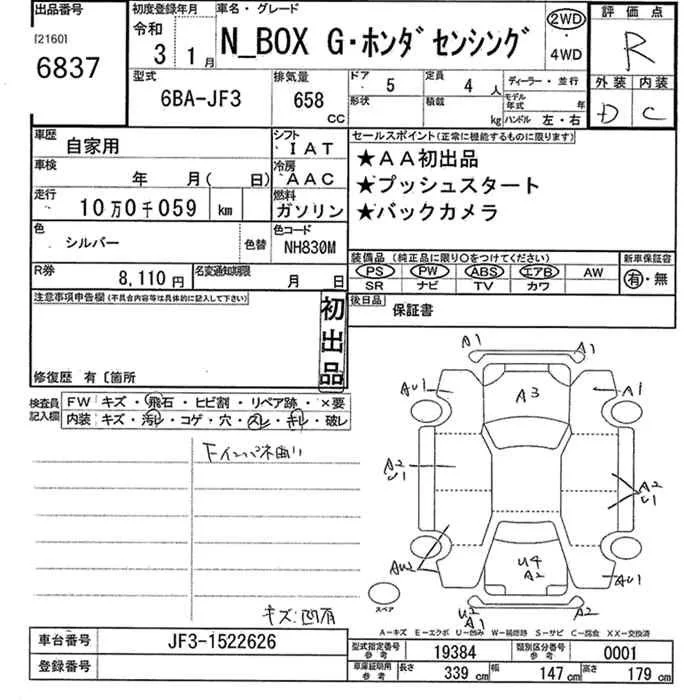 出品番号 初度登録年月 車名・グレード 評価点
[2160] 令和 3 1月 N_BOX G・ホンダセンシング 2WD 4WD R
6837 外装 内装
D C
型式 6BA-JF3 排気量 658 CC ドア 5 定員 4 人 ディーラー・並行
形状 積載 kg モデル年式 年 ハンドル 左・右
車歴 自家用 シフト IAT
車検 年 月( 日) 冷房 AAC
走行 10万0千059 km 燃料 ガソリン
色 シルバー 色替 色コード NH830M
R券 8,110円 名変通知期限 月 日
セールスポイント(正常に機能するものに限ります)
★AA初出品
★プッシュスタート
★バックカメラ
装備品(純正品に限り○をつけてください) 新車保証書
PS PW ABS エアB AW 有・無
SR ナビ TV カワ
後日品 保証書
注意事項申告欄(不具合内容等は具体的に記入して下さい)
初出品
修復歴 有〔箇所
検査員記入欄 FW キズ・飛石・ヒビ割・リペア跡・×要
内装 キズ・汚レ・コゲ・穴・スレ・キレ・破レ
キズ・凹有
A1 A1
AU1 A3 A1
A2 U1 A2 U1
AU2 U4 A2 AU1
U2 A1 A2
スペア
A－キズ E－エクボ U－凹み W－補修跡 S－サビ C－腐食 XX－交換済
車台番号 JF3-1522626
登録番号
型式指定番号 参考 19384 類別区分番号 参考 0001
車庫証明用 参考 長さ 339 cm 幅 147 cm 高さ 179 cm